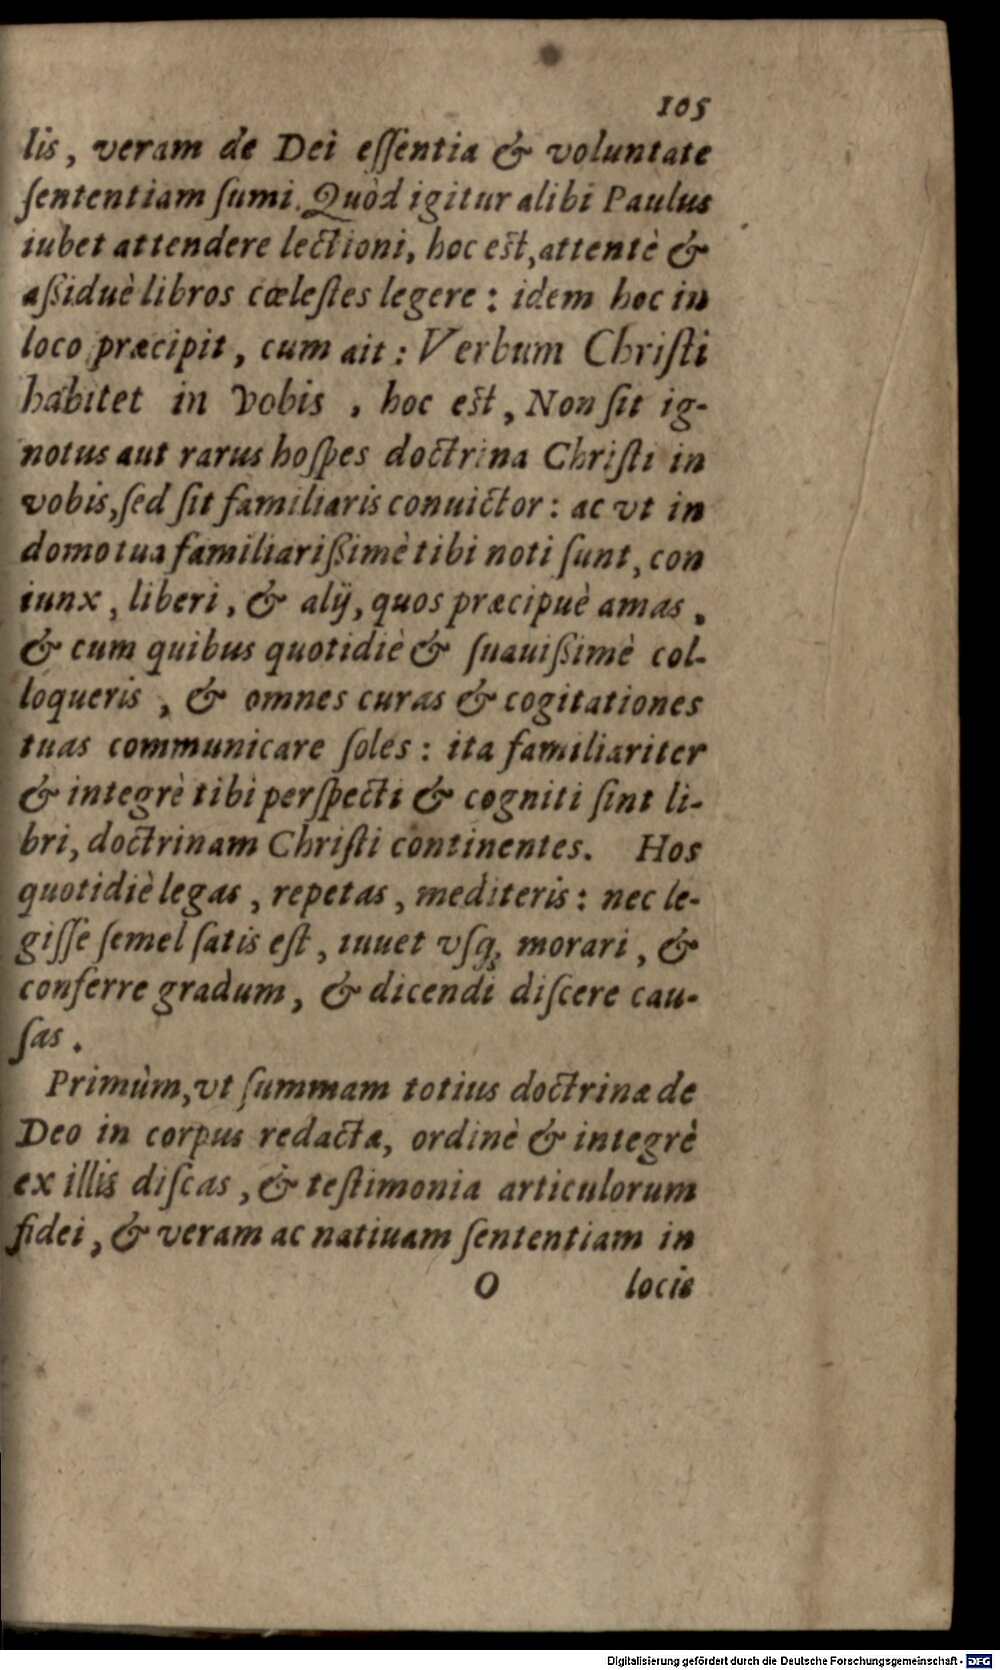 105
lis, veram de Dei eſſentia & voluntate
ſententiam ſumi. Quòd igitur alibi Paulus
iubet attendere lectioni, hoc est, attentè &
aßiduè libros cœleſtes legere: idem hoc in
loco præcipit, cum ait: Verbum Chriſti
habitet in vobis, hoc est, Non ſit ig-
notus aut rarus hoſpes doctrina Chriſti in
vobis, ſed ſit familiaris conuictor: ac vt in
domo tua familiarißimè tibi noti ſunt, con
iunx, liberi, & alij, quos præcipuè amas,
& cum quibus quotidiè & ſuauißimè col-
loqueris, & omnes curas & cogitationes
tuas communicare ſoles: ita familiariter
& integrè tibi perſpecti & cogniti ſint li-
bri, doctrinam Chriſti continentes. Hos
quotidiè legas, repetas, mediteris: nec le-
giſſe ſemel ſatis eſt, iuuet vſq; morari, &
conferre gradum, & dicendi diſcere cau-
ſas.
Primùm, vt ſummam totius doctrinæ de
Deo in corpus redactæ, ordinè & integrè
ex illis diſcas, & teſtimonia articulorum
fidei, & veram ac natiuam ſententiam in
O locis
Digitalisierung gefördert durch die Deutsche Forschungsgemeinschaft - DFG